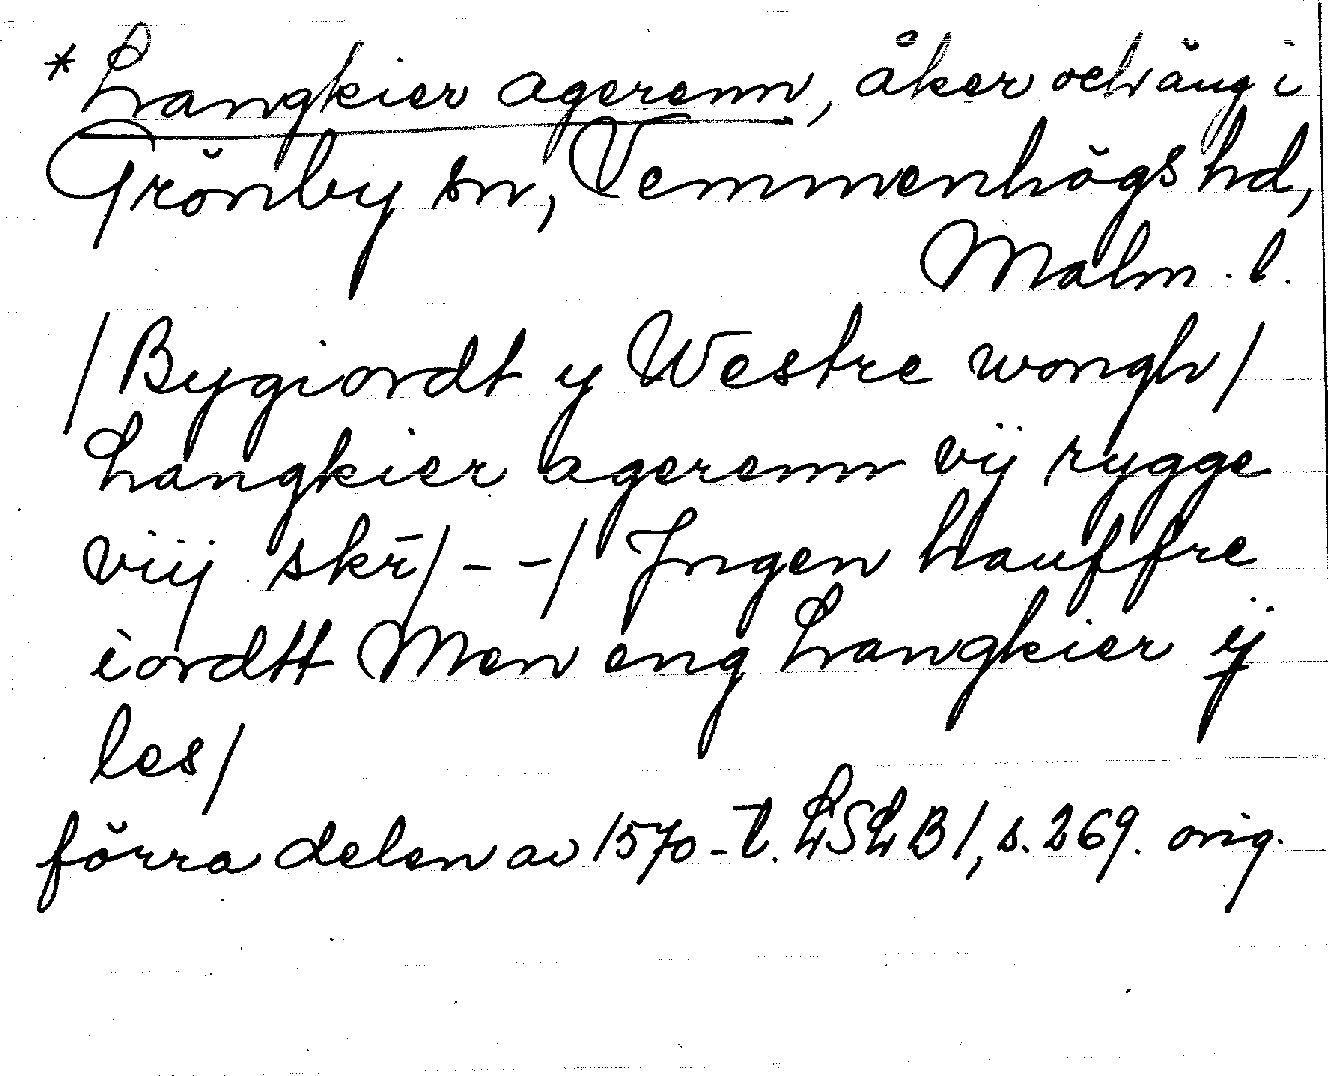 *Langkier agerenn, åker och äng i
Grönby sn, Vemmenhögs hd,
Malm. l.
/Bygiordt y Westre wongh/
Langkier agerenn vij rygge
viij skr̄/--/ Jngen hauffre
iordtt Men eng Langkier ij
les/
förra delen av 1570-t. LSLB1, s. 269. orig.